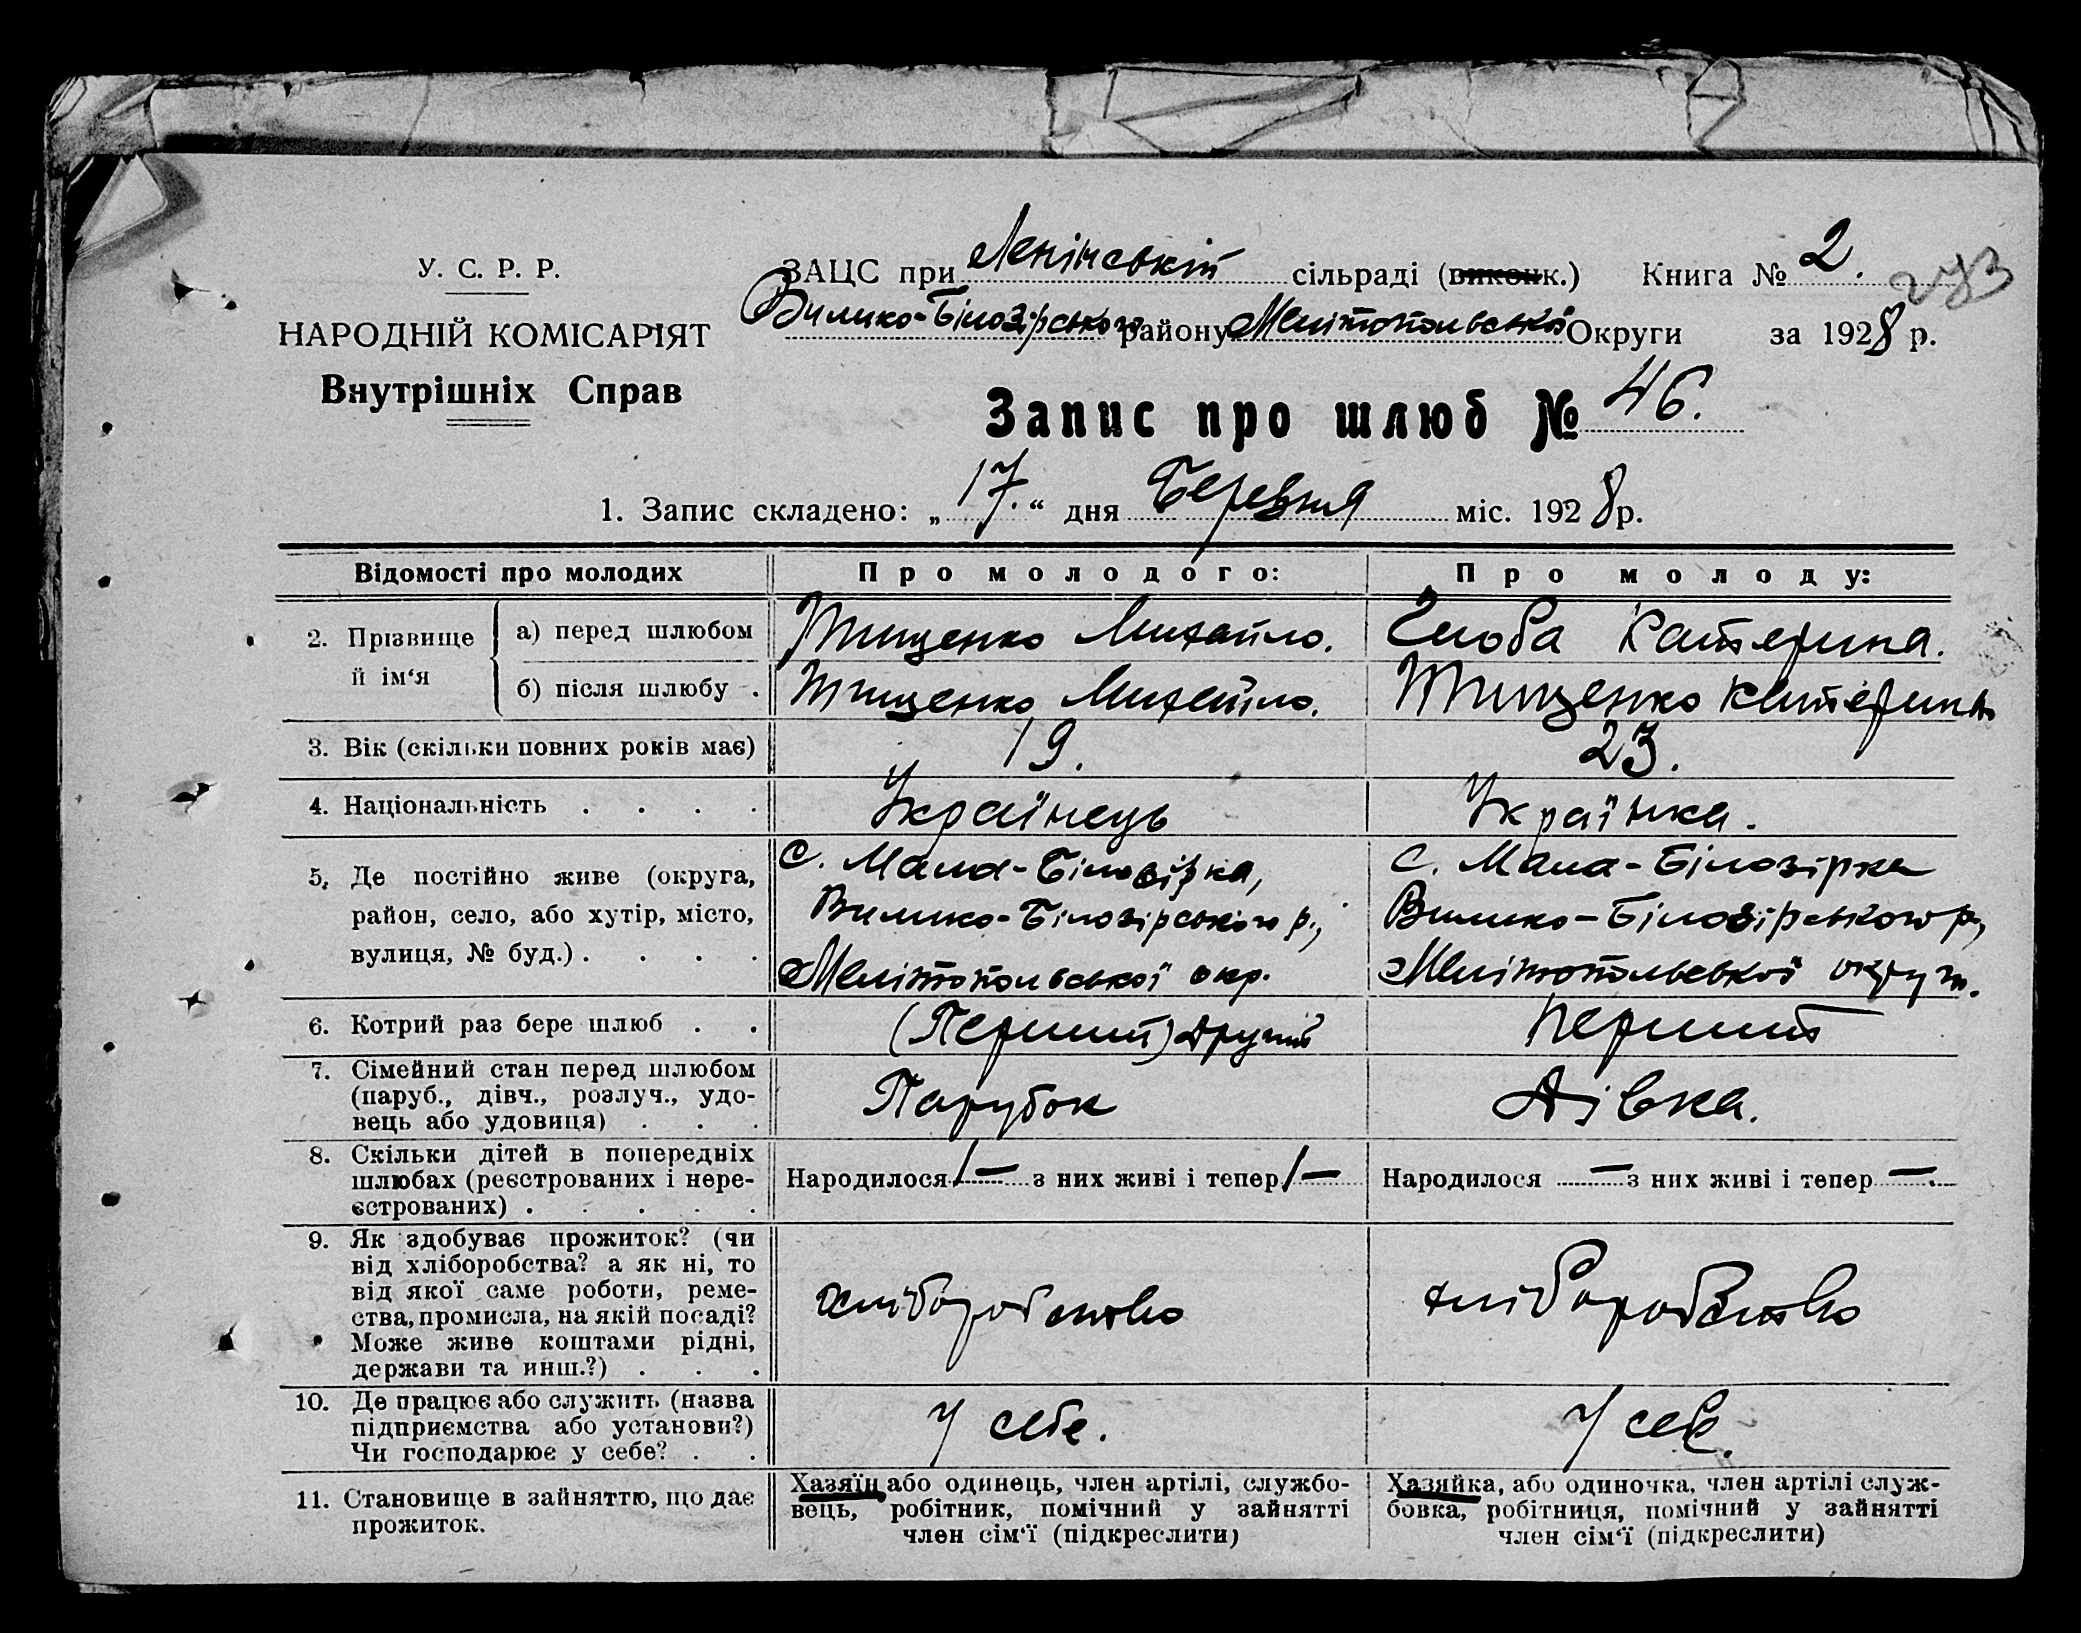 У. С. Р. Р.
НАРОДНІЙ КОМІСАРІЯТ
Внутрішніх Справ
ЗАЦС при Ленінській сільраді (виконк.) Книга № 2. 273
Вилико-Білозірського району Мелітопольської Округи за 1928 р.
Запис про шлюб № 46.
1. Запис складено: „17.“ дня Березня міс. 1928 р.
Відомості про молодих Про молодого: Про молоду:
2. Прізвище й ім‘я
а) перед шлюбом Тищенко Михайло. Глоба Катерина.
б) після шлюбу . Тищенко Михайло. Тищенко Катерина
3. Вік (скільки повних років має) 19. 23.
4. Національність . . . . Українець Українка.
5. Де постійно живе (округа, с. Мала-Білозірка, с. Мала-Білозірка
район, село, або хутір, місто, Вилико-Білозірського р., Вилико-Білозірського р.,
вулиця, № буд.) . . . . Мелітопольської окр. Мелітопольської округи.
6. Котрий раз бере шлюб . . (Перший) другий Перший
7. Сімейний стан перед шлюбом
(паруб., дівч., розлуч., удо- Парубок Дівка.
вець або удовиця) . . .
8. Скільки дітей в попередніх
шлюбах (реєстрованих і нере- Народилося 1 — з них живі і тепер 1 — Народилося — з них живі і тепер —.
єстрованих) . . . . .
9. Як здобуває прожиток? (чи
від хліборобства? а як ні, то
від якої саме роботи, реме-
ства, промисла, на якій посаді? хліборобство хліборобство
Може живе коштами рідні,
держави та инш.?) . . .
10. Де працює або служить (назва
підприємства або установи?) У себе. У себе.
Чи господарює у себе? . .
11. Становище в зайняттю, що дає
прожиток.
Хазяїн або одинець, член артілі, службо-
вець, робітник, помічний у зайнятті
член сім‘ї (підкреслити)
Хазяйка, або одиночка, член артілі служ-
бовка, робітниця, помічний у зайнятті
член сім‘ї (підкреслити)